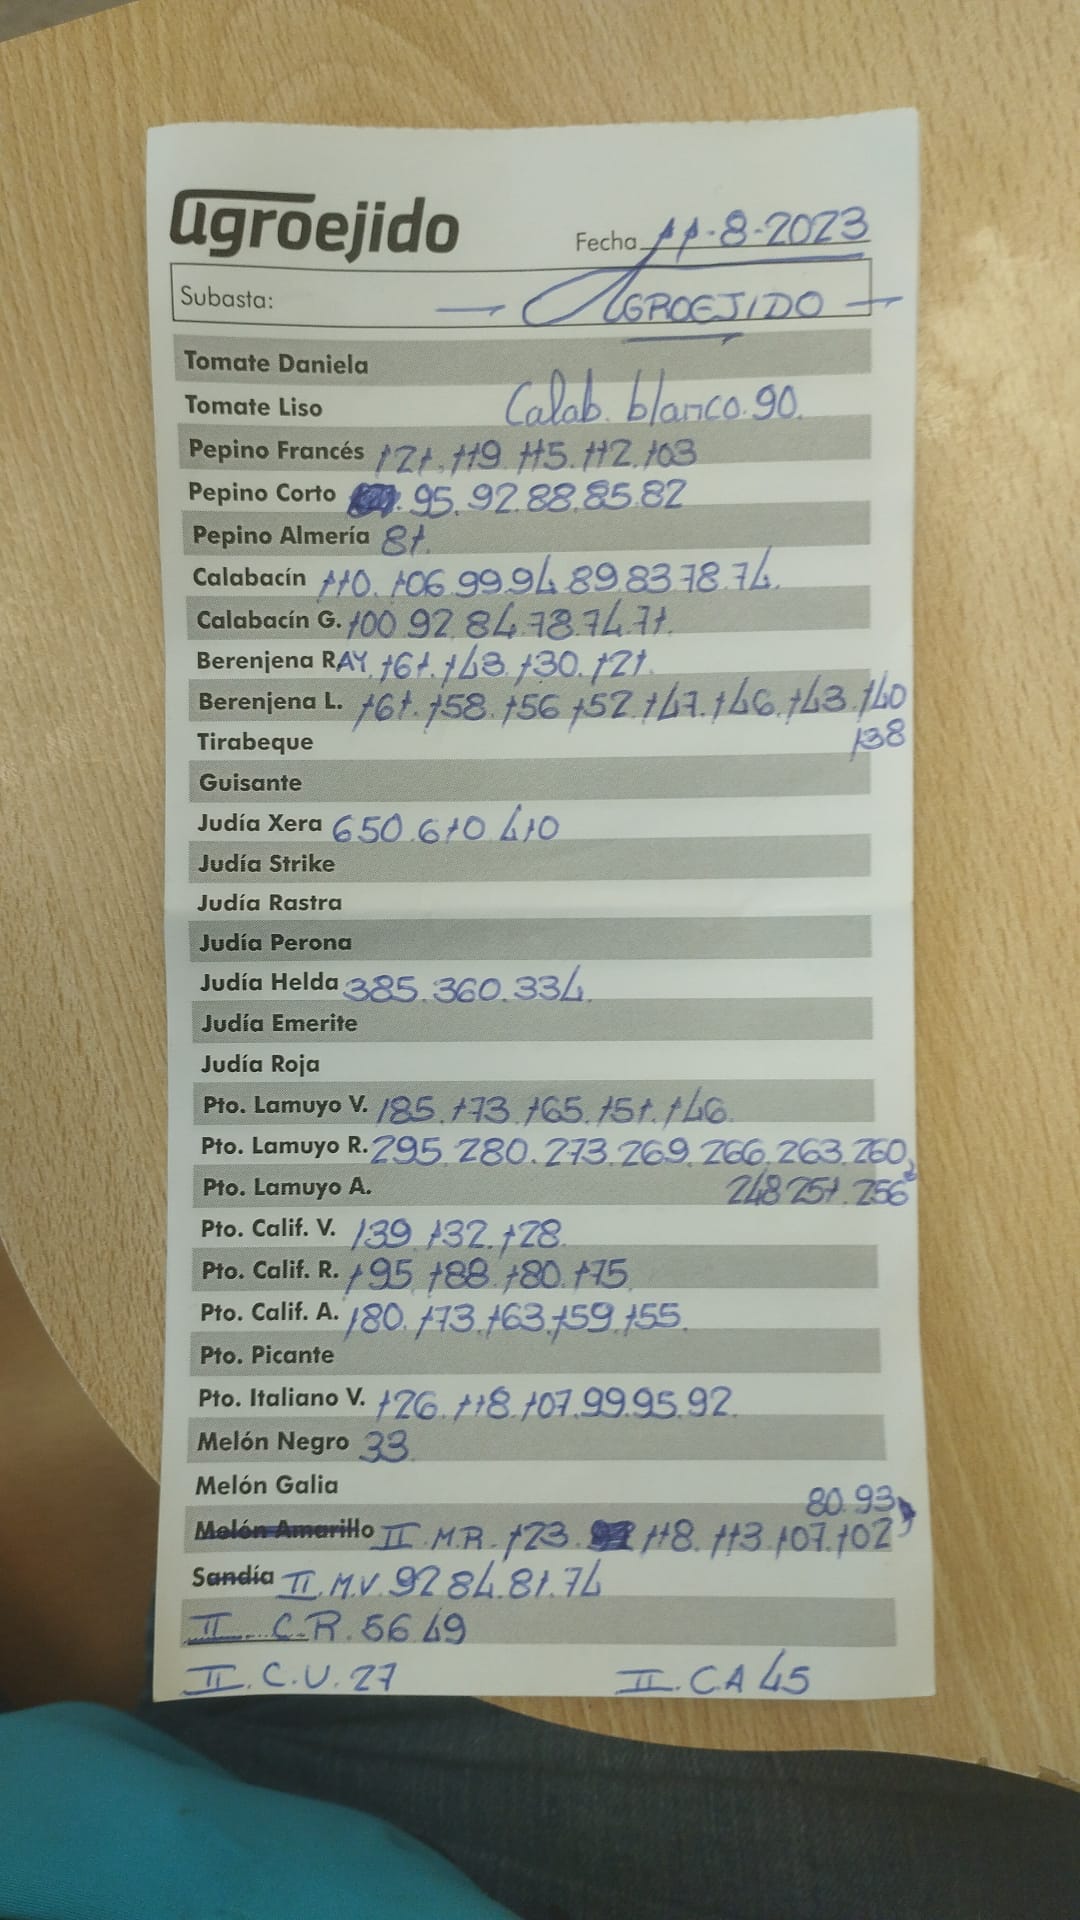 agroejido
Fecha 11-8-2023
Subasta: — AGROEJIDO —
Tomate Daniela
Tomate Liso Calab. blanco. 90.
Pepino Francés 121. 119. 115. 112. 103
Pepino Corto 95. 92. 88. 85. 82
Pepino Almería 81.
Calabacín 110. 106. 99. 94. 89. 83. 78. 74.
Calabacín G. 100. 92. 84. 78. 74. 71.
Berenjena RAY. 161. 143. 130. 121.
Berenjena L. 161. 158. 156. 152. 147. 146. 143. 140
Tirabeque 138
Guisante
Judía Xera 650. 610. 410
Judía Strike
Judía Rastra
Judía Perona
Judía Helda 385. 360. 334.
Judía Emerite
Judía Roja
Pto. Lamuyo V. 185. 173. 165. 151. 146.
Pto. Lamuyo R. 295. 280. 273. 269. 266. 263. 260
Pto. Lamuyo A. 248 251. 256
Pto. Calif. V. 139. 132. 128.
Pto. Calif. R. 195. 188. 180. 175.
Pto. Calif. A. 180. 173. 163. 159. 155.
Pto. Picante
Pto. Italiano V. 126. 118. 107. 99. 95. 92.
Melón Negro 33
Melón Galia 80. 93
Melón Amarillo II. M.R. 123. 118. 113. 107. 102
Sandía II. M.V. 92 84. 81. 74
II. C.R. 56 49
II. C.U. 27 II. CA 45